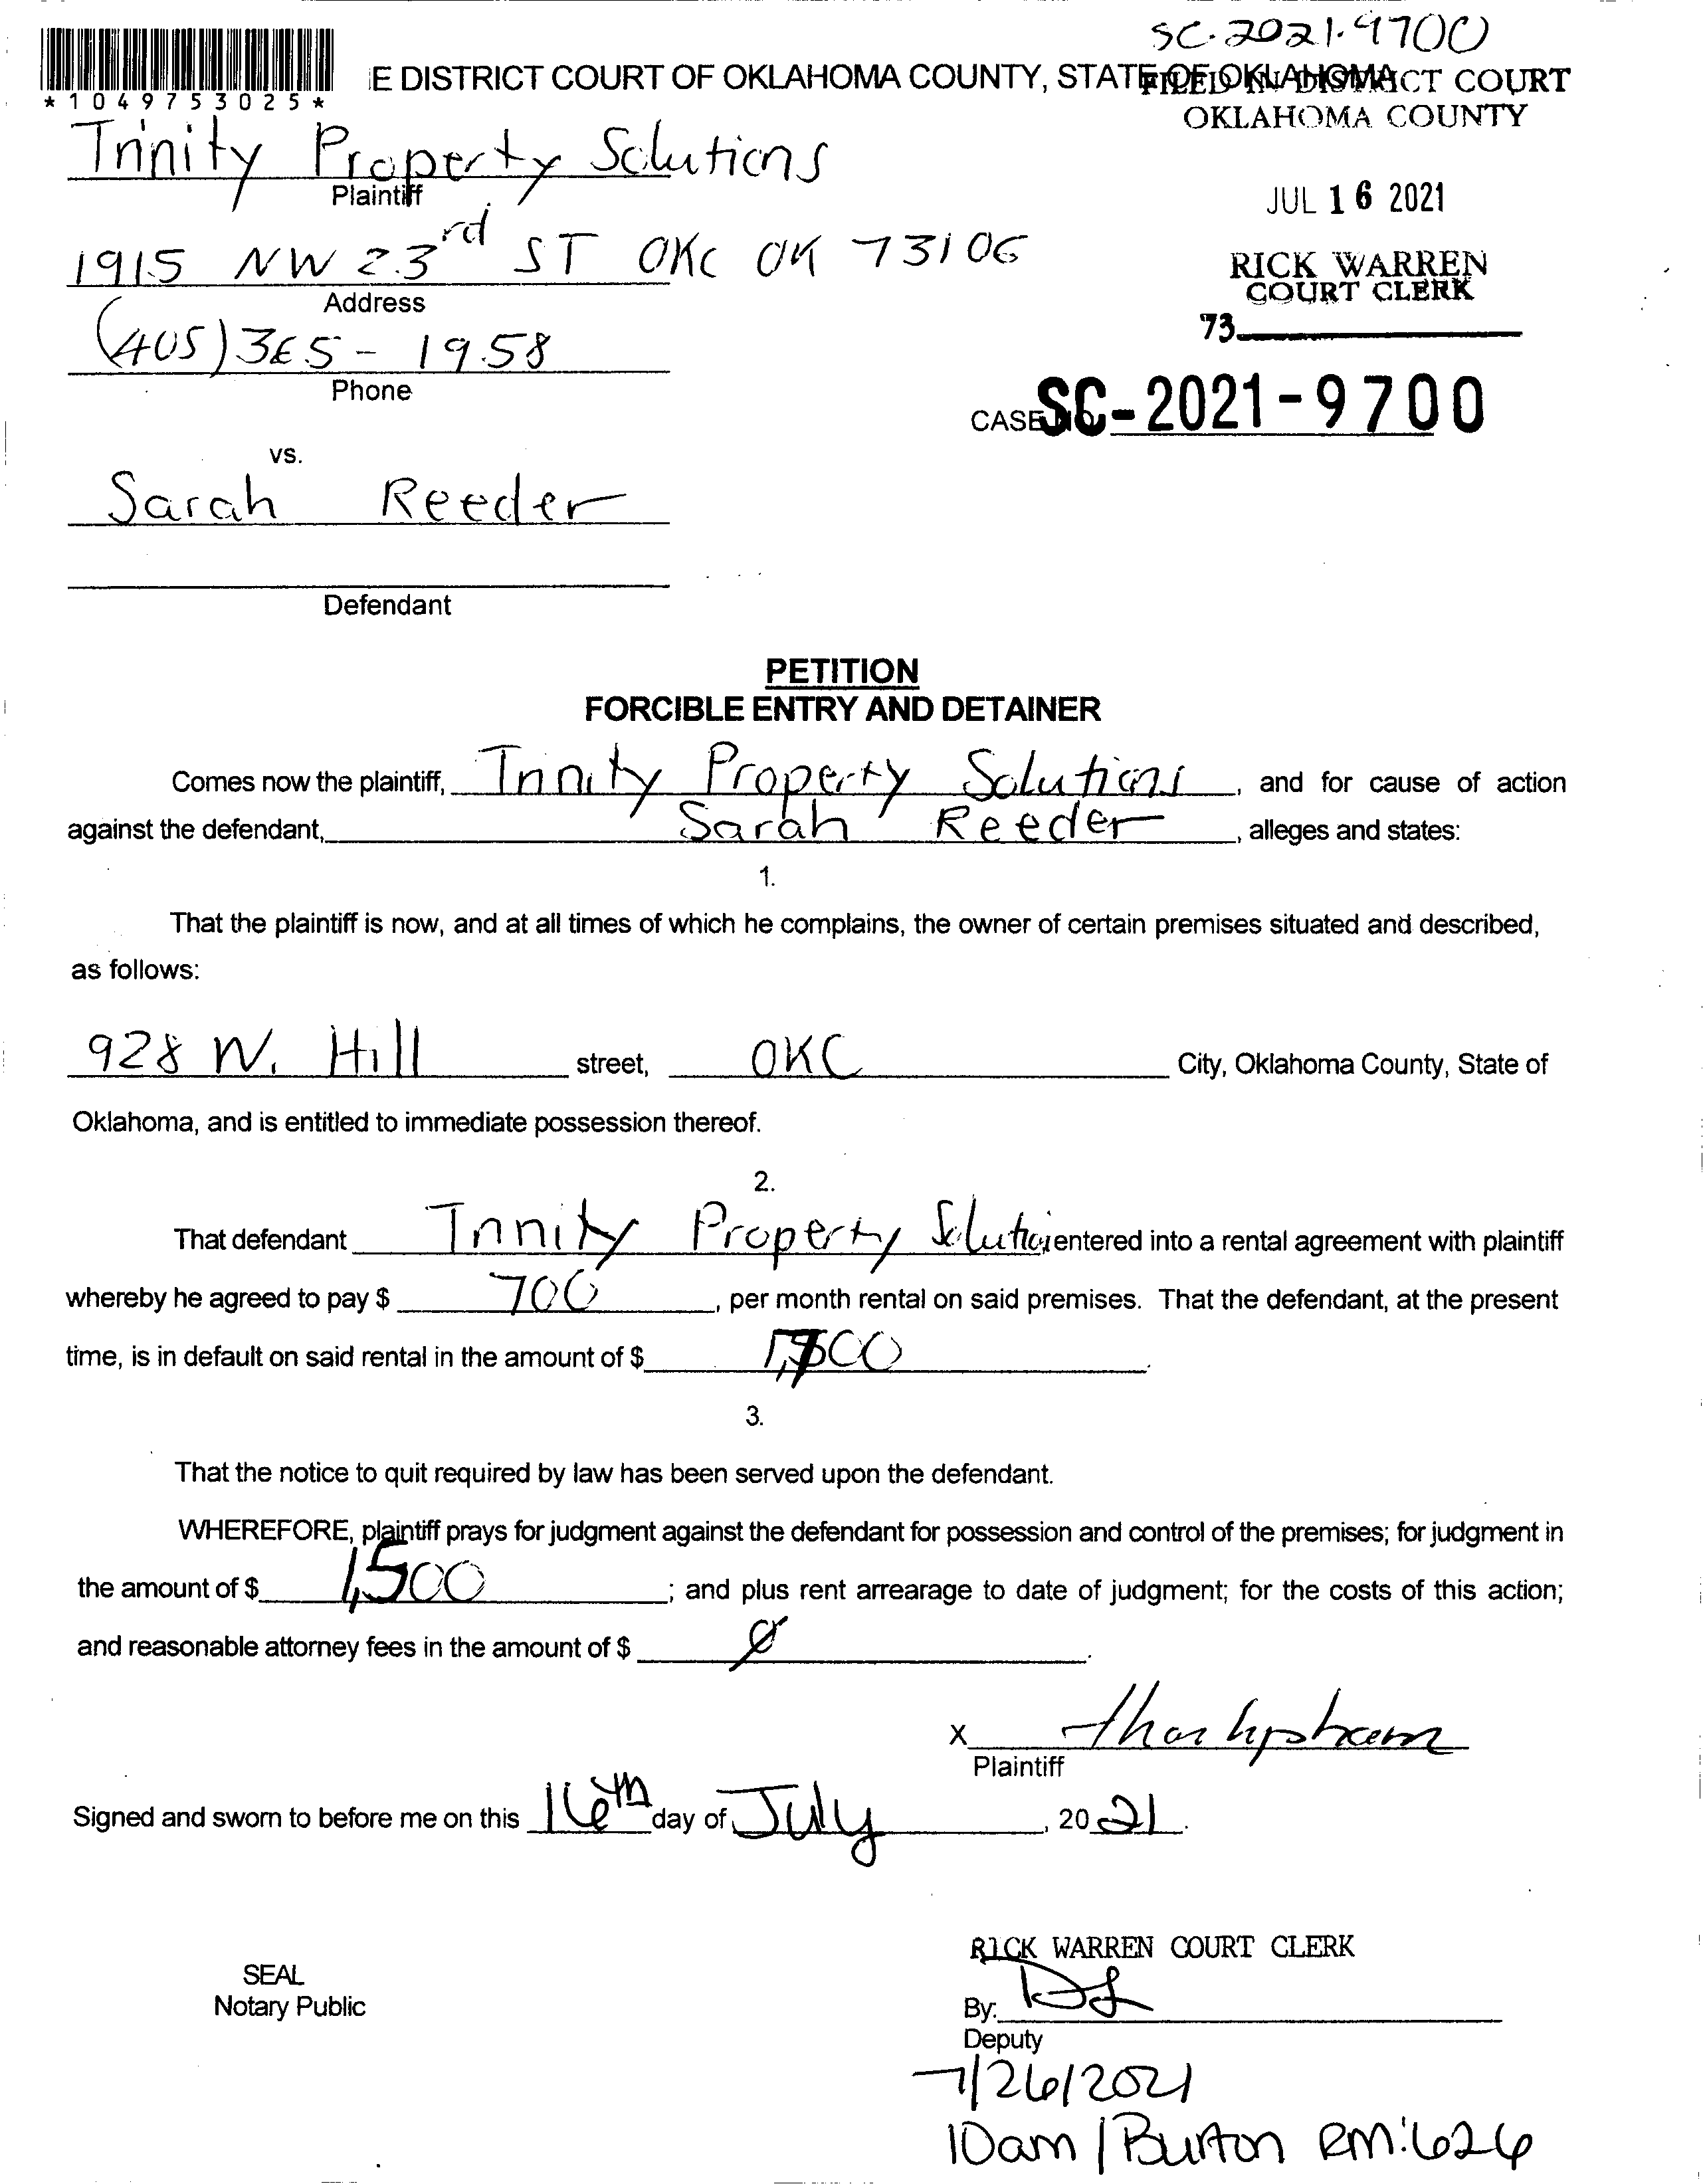 SC-2021-9700
*1049753025*
E DISTRICT COURT OF OKLAHOMA COUNTY, STATE OF OKLAHOMA
FILED IN DISTRICT COURT
OKLAHOMA COUNTY
Trinity Property Solutions
Plaintiff
JUL 16 2021
1915 NW 23rd ST OKC OK 73106
Address
RICK WARREN
COURT CLERK
73
(405) 365-1958
Phone
CASE SC-2021-9700
vs.
Sarah Reeder
Defendant
PETITION
FORCIBLE ENTRY AND DETAINER
Comes now the plaintiff, Trinity Property Solutions, and for cause of action
against the defendant, Sarah Reeder, alleges and states:
1.
That the plaintiff is now, and at all times of which he complains, the owner of certain premises situated and described,
as follows:
928 W. Hill street, OKC City, Oklahoma County, State of
Oklahoma, and is entitled to immediate possession thereof.
2.
That defendant Trinity Property Solution entered into a rental agreement with plaintiff
whereby he agreed to pay $ 700, per month rental on said premises. That the defendant, at the present
time, is in default on said rental in the amount of $
3.
That the notice to quit required by law has been served upon the defendant.
WHEREFORE, plaintiff prays for judgment against the defendant for possession and control of the premises; for judgment in
the amount of $ 1,500; and plus rent arrearage to date of judgment; for the costs of this action;
and reasonable attorney fees in the amount of $ Ø.
X
Plaintiff
Signed and sworn to before me on this 16th day of July, 2021.
RICK WARREN COURT CLERK
SEAL
Notary Public
By:
Deputy
7/26/2021
10am / Burton RM:626